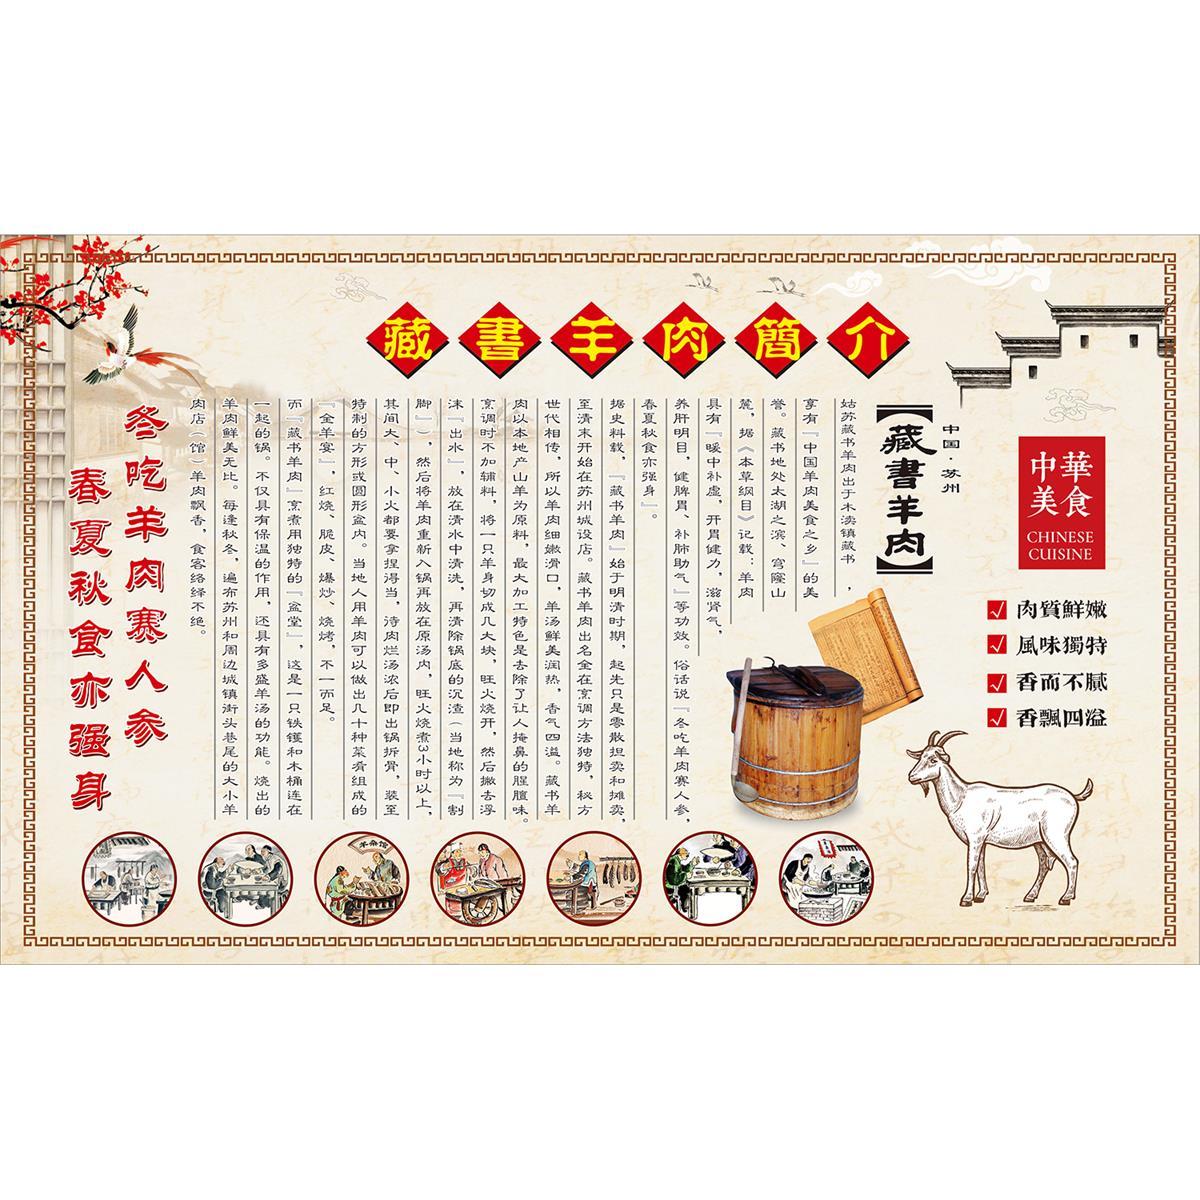 藏書羊肉簡介
中華
美食
CHINESE
CUISINE
肉質鮮嫩
風味獨特
香而不膩
香飄四溢
中国·苏州
【藏書羊肉】
姑苏藏书羊肉出于木渎镇藏书，
享有『中国羊肉美食之乡』的美
誉。藏书地处太湖之滨、穹窿山
麓，据《本草纲目》记载：羊肉
具有『暖中补虚，开胃健力，滋肾气，
养肝明目，健脾胃、补肺助气』等功效。俗话说『冬吃羊肉赛人参，
春夏秋食亦强身』。
据史料载，『藏书羊肉』始于明清时期，起先只是零散担卖和摊卖，
至清末开始在苏州城设店。藏书羊肉出名全在烹调方法独特，秘方
世代相传，所以羊肉细嫩滑口，羊汤鲜美润热，香气四溢。藏书羊
肉以本地产山羊为原料，最大加工特色是去除了让人掩鼻的腥膻味。
烹调时不加辅料，将一只羊身切成几大块，旺火烧开，然后撇去浮
沫『出水』，放在清水中清洗，再清除锅底的沉渣（当地称为『割
脚』），然后将羊肉重新入锅再放在原汤内，旺火烧煮3小时以上，
其间大、中、小火都要拿捏得当，待肉烂汤浓后即出锅拆骨，装至
特制的方形或圆形盆内。当地人用羊肉可以做出几十种菜肴组成的
『全羊宴』，红烧、脆皮、爆炒、烧烤，不一而足。
而『藏书羊肉』烹煮用独特的『盆堂』，这是一只铁镬和木桶连在
一起的锅。不仅具有保温的作用，还具有多盛羊汤的功能。烧出的
羊肉鲜美无比。每逢秋冬，遍布苏州和周边城镇街头巷尾的大小羊
肉店（馆）羊肉飘香，食客络绎不绝。
冬吃羊肉赛人参
春夏秋食亦强身
羊杂馆